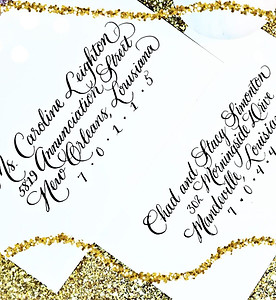 Ms. Caroline Leighton
5839 Annunciation Street
New Orleans, Louisiana
7 0 1 1 5
Chad and Stacy Simonton
302 Morningside Drive
Mandeville, Louisia
7 0 4 4